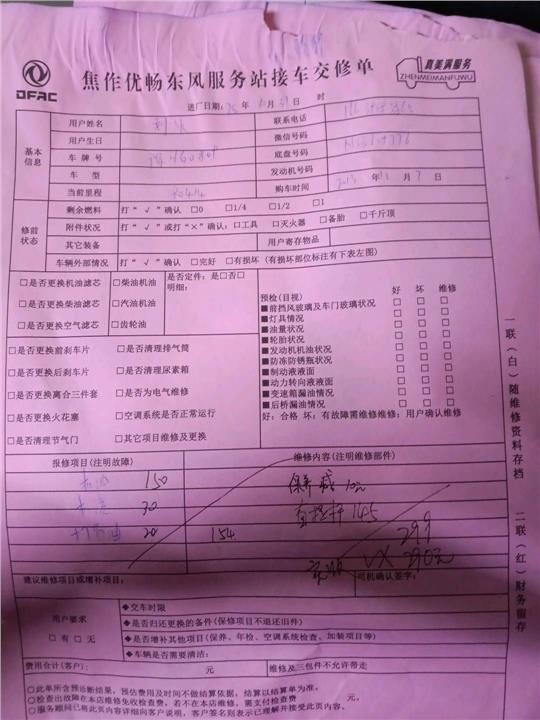 DFAC
焦作优畅东风服务站接车交修单
真美满服务
ZHENMEIMANFUWU
进厂日期: 年 月 日 时
基本信息
用户姓名
联系电话
用户生日
微信号码
车牌号
底盘号码
车型
发动机号码
当前里程
购车时间 年 月 7 日
修前状态
剩余燃料 打“√”确认 □0 □1/4 □1/2 □1
附件状况 打“√”或打“×”确认: □工具 □灭火器 □备胎 □千斤顶
其它装备
用户寄存物品
车辆外部情况 打“√”确认 □完好 □有损坏(有损坏部位标注有下表左图)
□是否更换机油滤芯 □柴油机油
□是否更换柴油滤芯 □汽油机油
□是否更换空气滤芯 □齿轮油
是否定件: 是□否□
明细:
□是否更换前刹车片 □是否清理排气筒
□是否更换后刹车片 □是否清理尿素箱
□是否更换离合三件套 □是否为电气维修
□是否更换火花塞 □空调系统是否正常运行
□是否清理节气门 □其它项目维修及更换
预检(目视) 好 坏 维修
■前挡风玻璃及车门玻璃状况 □ □ □
■灯具情况 □ □ □
■油量状况 □ □ □
■轮胎状况 □ □ □
■发动机机油状况 □ □ □
■防冻防锈瓶状况 □ □ □
■制动液液面 □ □ □
■动力转向液液面 □ □ □
■变速箱漏油情况 □ □ □
■后桥漏油情况 □ □ □
好: 合格 坏: 有故障需维修维修: 用户确认维修
报修项目(注明故障)
维修内容(注明维修部件)
机油 150
30
20 154
保养减 10元
直拉杆 145
299
290元
建议维修项目或增补项目:
司机确认签字:
用户要求
□有 □无
◆交车时限
◆是否归还更换的备件(保修项目不退还旧件)
◆是否增补其他项目(保养、年检、空调系统检查、加装项目等)
◆车辆是否需要清洁:
费用合计(客户): 元
维修及三包件不允许带走
○此单所含预诊断结果,预估费用及时间不做结算依据,结算以结算单为准。
○检查出故障在本店维修免收检查费,若不在本店维修,需支付检查费 元。
○服务顾问已将此页内容详细向客户说明,客户签名则表示已理解并接受此页内容。
一联(白)随维修资料存档
二联(红)财务留存